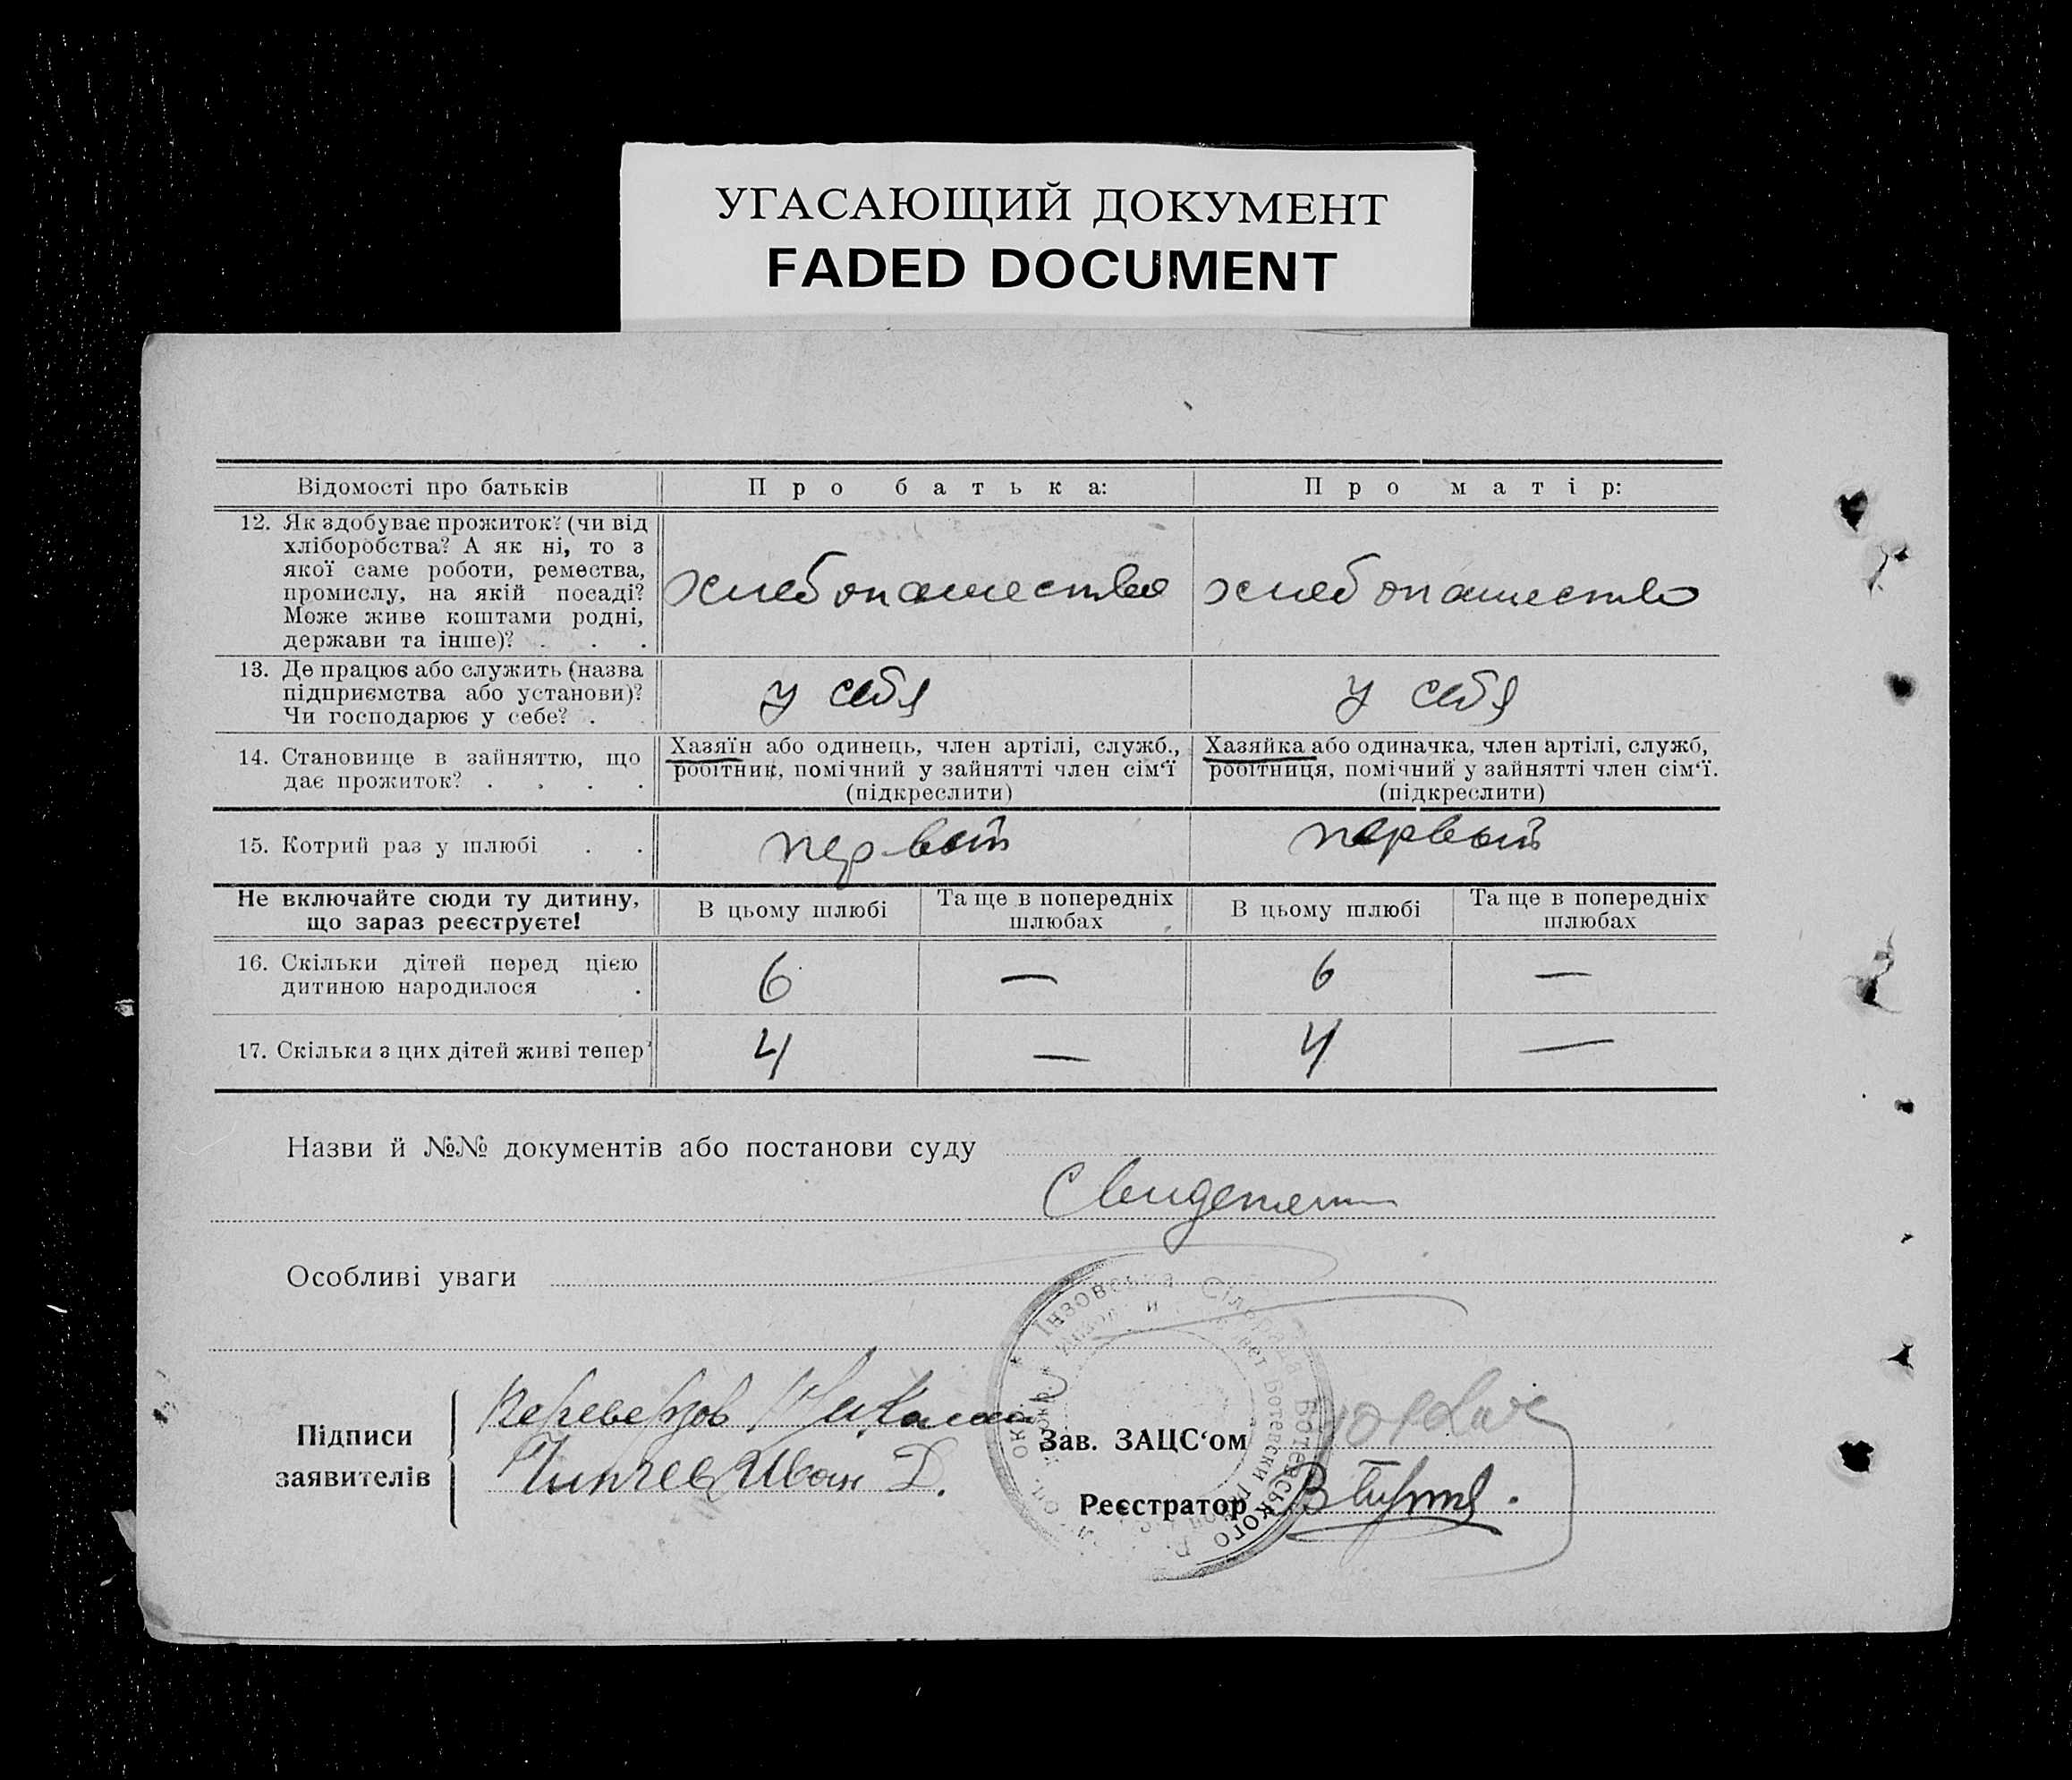 УГАСАЮЩИЙ ДОКУМЕНТ
FADED DOCUMENT
Відомості про батьків
Про батька:
Про матір:
12. Як здобуває прожиток? (чи від
хліборобства? А як ні, то з
якої саме роботи, ремества,
промислу, на якій посаді?
Може живе коштами родні,
держави та інше)? . . .
хлебопашество
хлебопашество
13. Де працює або служить (назва
підприємства або установи)?
Чи господарює у себе? .
у себя
у себя
14. Становище в зайняттю, що
дає прожиток? . . . .
Хазяїн або одинець, член артілі, служб.,
робітник, помічний у зайнятті член сім‘ї
(підкреслити)
Хазяйка або одиначка, член артілі, служб,
робітниця, помічний у зайнятті член сім‘ї.
(підкреслити)
15. Котрий раз у шлюбі . .
первый
первый
Не включайте сюди ту дитину,
що зараз реєструєте!
В цьому шлюбі
Та ще в попередніх
шлюбах
В цьому шлюбі
Та ще в попередніх
шлюбах
16. Скільки дітей перед цією
дитиною народилося .
6
—
6
—
17. Скільки з цих дітей живі тепер
4
—
4
—
Назви й №№ документів або постанови суду
Свидетели
Особливі уваги
Інзовська Сільрада Ботевського
Підписи
заявителів
Переверзов
Иван Д.
Зав. ЗАЦС‘ом
Реєстратор